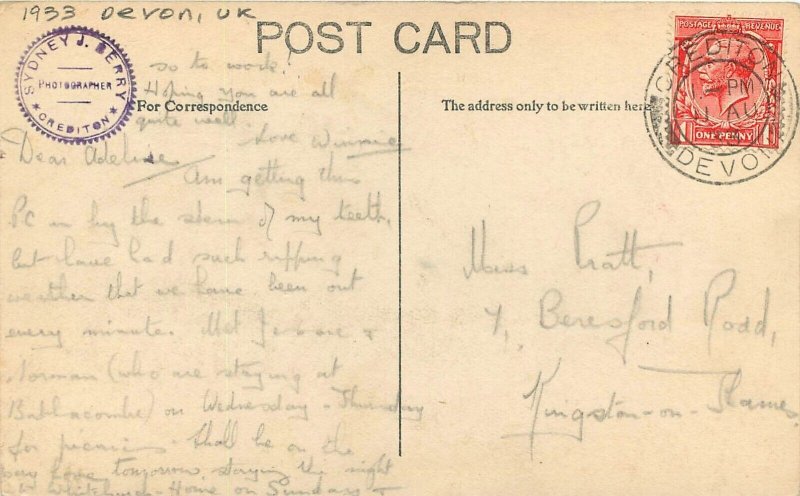 1933 Devon, UK
POST CARD
SYDNEY J. BERRY
PHOTOGRAPHER
CREDITON
For Correspondence
The address only to be written here
POSTAGE REVENUE
ONE PENNY
CREDITON
PM
AU
DEVON
Dear Adeline
Am getting this
PC in by the skin of my teeth,
but have had such ripping
weather that we have been out
every minute. Met &
Norman (who are staying at
Babbacombe) on Wednesday - Thursday
for picnics - Shall be on the
home tomorrow staying the night
at - Home on Sunday &
so to work!
Hoping you are all
quite well.
Love Winnie
Miss Pratt,
7, Beresford Road,
Kingston-on-Thames